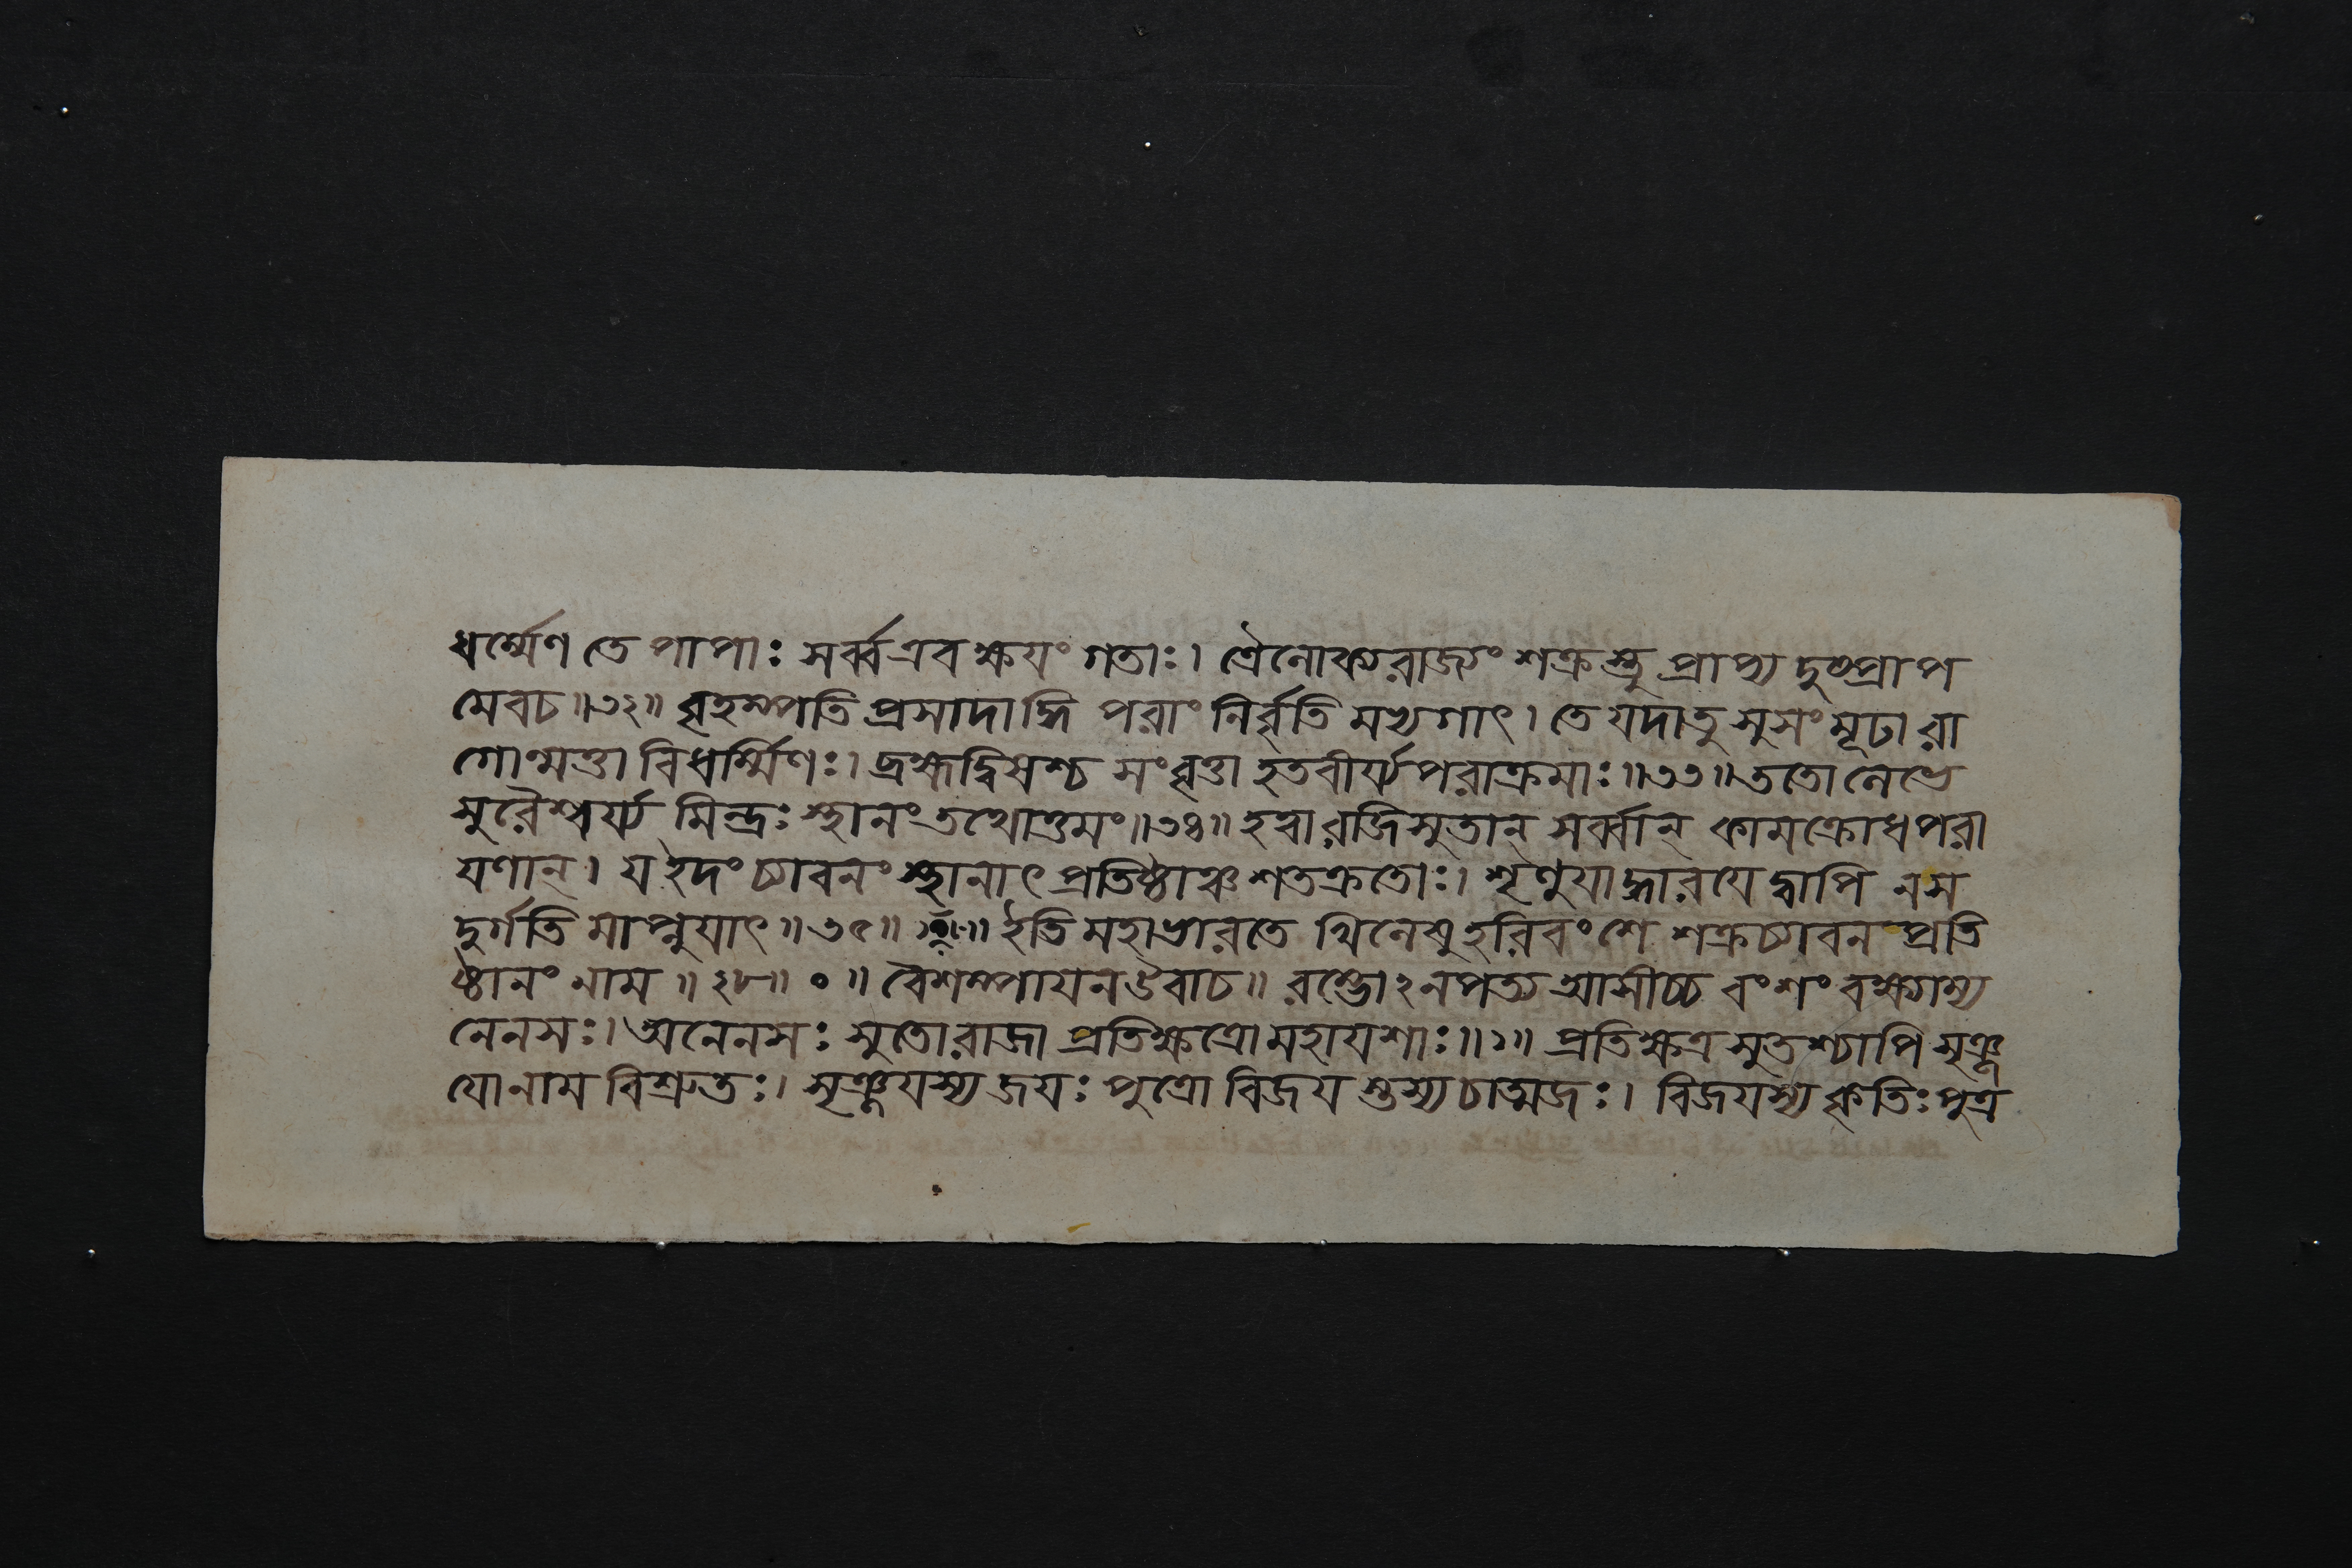 ধর্ম্মেণ তে পাপাঃ সর্ব্ব এব ক্ষয়ং গতাঃ। ত্রৈলোক্যরাজ্যং শক্রস্তু প্রাপ্য দুষ্প্রাপ
মেবচ॥৩২॥ বৃহস্পতি প্রসাদাদ্ধি পরাং নির্বৃতি মভ্যগাৎ। তে যদাতু সুসংমূঢা রা
গোন্মত্তা বিধর্ম্মিণঃ। ব্রহ্মদ্বিষশ্চ সংবৃত্তা হতবীর্য্যপরাক্রমাঃ॥৩৩॥ ততো লেভে
সুরৈশ্বর্য্য মিন্দ্রঃ স্থানং তথোত্তমং॥৩৪॥ হত্বা রজিসুতান্ সর্ব্বান্ কামক্রোধপরা
যণান্। য ইদং চ্যাবনং স্থানাৎ প্রতিষ্ঠাঞ্চ শতক্রতোঃ। শৃণুযাদ্ধারযেদ্বাপি নস
দুর্গতি মাপ্নুযাৎ॥৩৫॥ ॥ ইতি মহাভারতে খিলেষু হরিবংশে শক্রচ্যাবন প্রতি
ষ্ঠানং নাম॥২৮॥ ০ ॥ বৈশম্পাযন উবাচ॥ রম্ভোঽনপত্য আসীচ্চ বংশং বক্ষ্যাম্য
নেনসঃ। অনেনসঃ সুতো রাজা প্রতিক্ষত্রো মহাযশাঃ॥১॥ প্রতিক্ষত্র সুতশ্চাপি সৃঞ্জ
যো নাম বিশ্রুতঃ। সৃঞ্জযস্য জযঃ পুত্রো বিজয স্তস্য চাত্মজঃ। বিজযস্য কৃতিঃ পুত্র